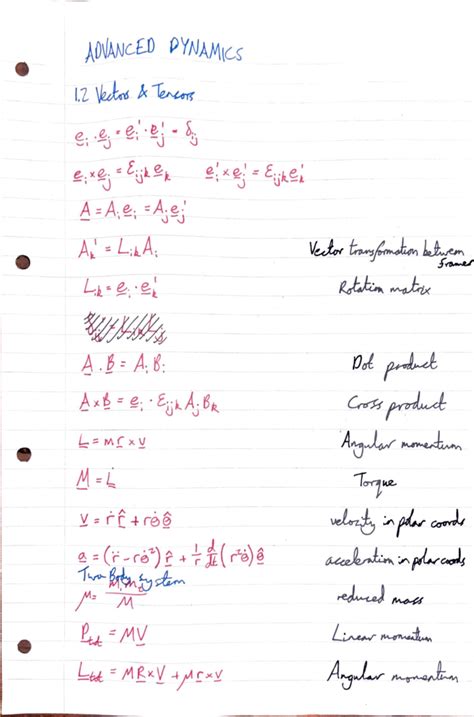 ADVANCED DYNAMICS
1.2 Vectors & Tensors
e̲ᵢ · e̲ⱼ = e̲ᵢ' · e̲ⱼ' = δᵢⱼ
e̲ᵢ × e̲ⱼ = εᵢⱼₖ e̲ₖ e̲ᵢ' × e̲ⱼ' = εᵢⱼₖ e̲ₖ'
A̲ = Aᵢ e̲ᵢ = Aⱼ e̲ⱼ'
Aₖ' = Lᵢₖ Aᵢ Vector transformation between frames
Lᵢₖ = e̲ᵢ · e̲ₖ' Rotation matrix
A̲ . B̲ = Aᵢ Bᵢ Dot product
A̲ × B̲ = e̲ᵢ · εᵢⱼₖ Aⱼ Bₖ Cross product
L̲ = m r̲ × v̲ Angular momentum
M̲ = L̲̇ Torque
v̲ = ṙ r̲̂ + r θ̇ θ̲̂ velocity in polar coords
a̲ = (r̈ - r θ̇²) r̲̂ + 1/r d/dt (r² θ̇) θ̲̂ acceleration in polar coords
Two Body system
μ = m₁m₂/M reduced mass
P̲tot = M V̲ Linear momentum
L̲tot = M R̲ × V̲ + μ r̲ × v̲ Angular momentum